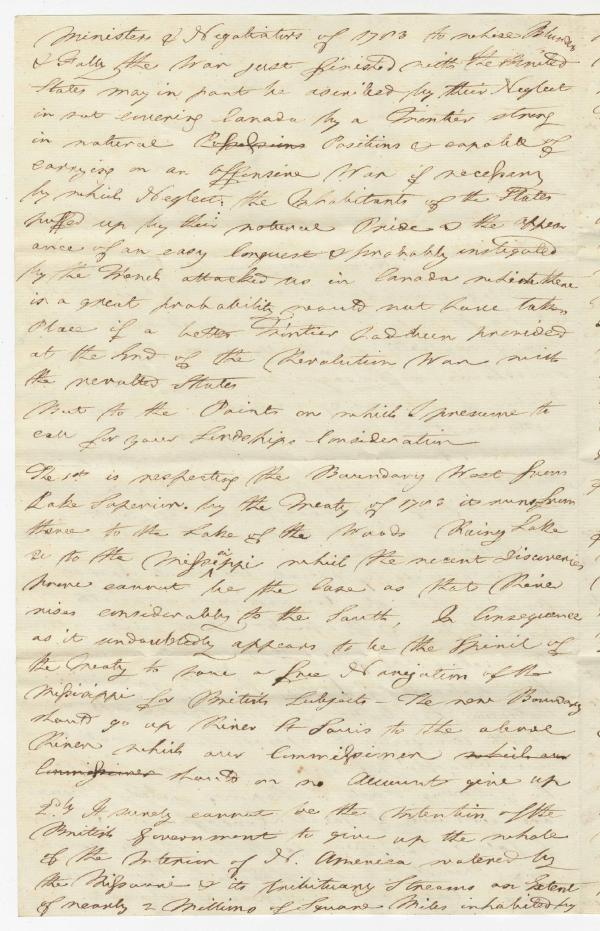 Ministers & Negotiators of 1783 to whose Blunders
& Folly the War just finished with the United
States may in part be ascribed by their Neglect
in not covering Canada by a Frontier strong
in natural Positions & capable of
carrying on an offensive War if necessary
by which Neglect, the Inhabitants of the States
puffed up by their natural Pride & the appear
ance of an easy Conquest & probably instigated
by the French attacked us in Canada which there
is a great probability would not have taken
Place if a better Frontier had been provided
at the End of the Revolution War with
the revolted States
But to the Points on which I presume to
call for your Lordships Consideration
The 1st is respecting the Boundary West from
Lake Superior. by the Treaty of 1783 it runs from
thence to the Lake of the Woods Rainy Lake
&c to the Missisappi which the recent Discoveries
prove cannot be the Case as that River
rises considerably to the South, In Consequence
as it undoubtedly appears to be the Spirit of
the Treaty to have a free Navigation of the
Missisappi for British Subjects - The new Boundary
should go up River St Louis to the above
River which our Commissioner which our
Commissioner should on no Account give up
2dly It surely cannot be the Intention of the
British Government to give up the whole
of the Interior of N. America watered by
the Missouri & its tributary Streams an Extent
of nearly 2 Millions of Square Miles inhabited by